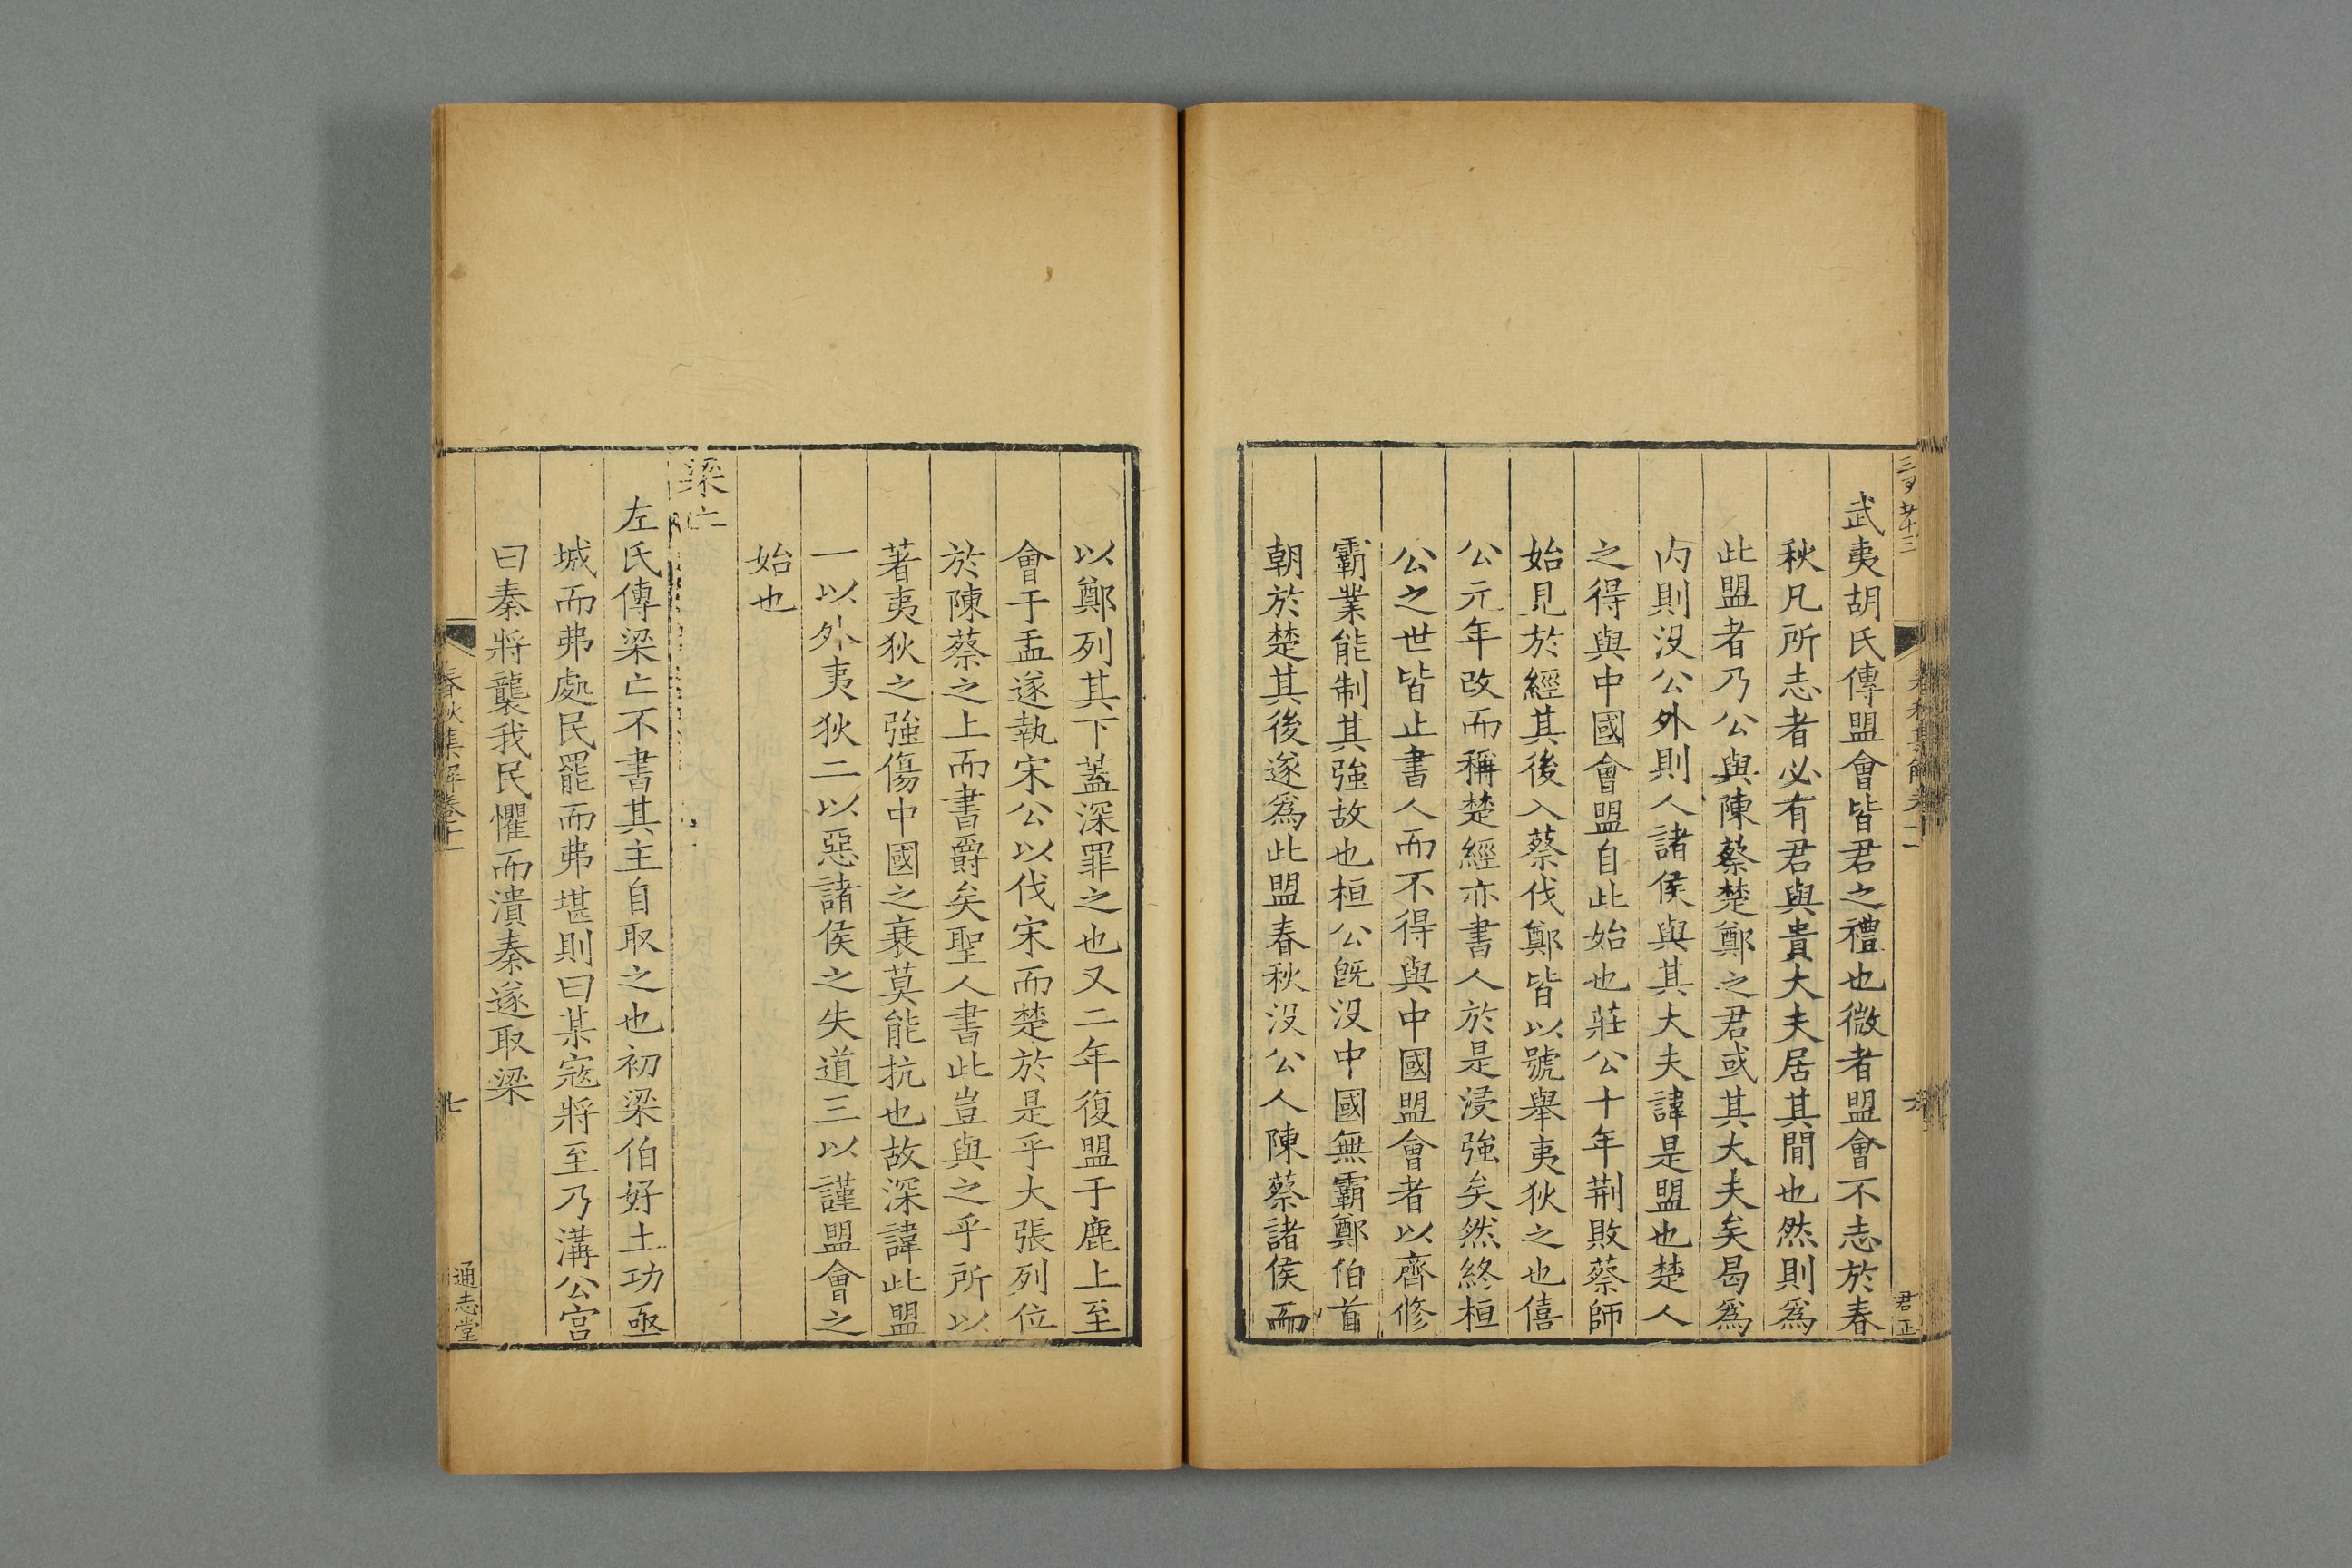 武夷胡氏傳盟會皆君之禮也微者盟會不志於春
秋凡所志者必有君與貴大夫居其間也然則爲
此盟者乃公與陳蔡楚鄭之君或其大夫矣曷爲
内則沒公外則人諸侯與其大夫諱是盟也楚人
之得與中國會盟自此始也莊公十年荆敗蔡師
始見於經其後入蔡伐鄭皆以號舉夷狄之也僖
公元年改而稱楚經亦書人於是浸強矣然終桓
公之世皆止書人而不得與中國盟會者以齊修
霸業能制其強故也桓公旣沒中國無霸鄭伯首
朝於楚其後遂爲此盟春秋沒公人陳蔡諸侯而
以鄭列其下蓋深罪之也又二年復盟于鹿上至
會于盂遂執宋公以伐宋而楚於是乎大張列位
於陳蔡之上而書爵矣聖人書此豈與之乎所以
著夷狄之強傷中國之衰莫能抗也故深諱此盟
一以外夷狄二以惡諸侯之失道三以謹盟會之
始也
梁亡
左氏傳梁亡不書其主自取之也初梁伯好土功亟
城而弗處民罷而弗堪則曰某寇將至乃溝公宮
曰秦將襲我民懼而潰秦遂取梁
春秋集解卷十二
七
通志堂
君正